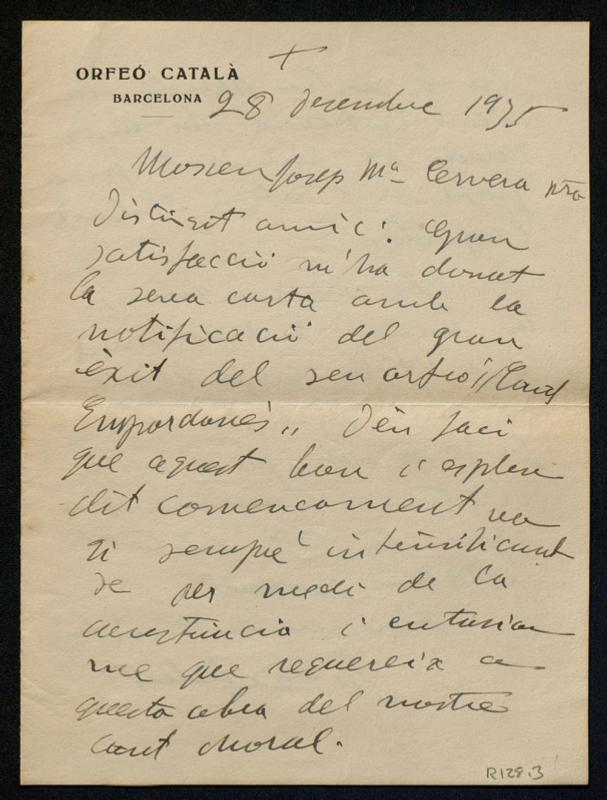 +
ORFEÓ CATALÀ
BARCELONA
28 desembre 1935
Mossen Josep Mª Cervera pre
Distingit amic: Gran
satisfacció m'ha donat
la seva carta amb la
notificació del gran
èxit del seu orfeó "Cant
Empordanès". Déu faci
que aquest bon i esplen
dit començament va
gi sempre intensificant
se per medi de la
constància i entusias
me que requereix a
questa obra del nostre
cant choral.
R128.3